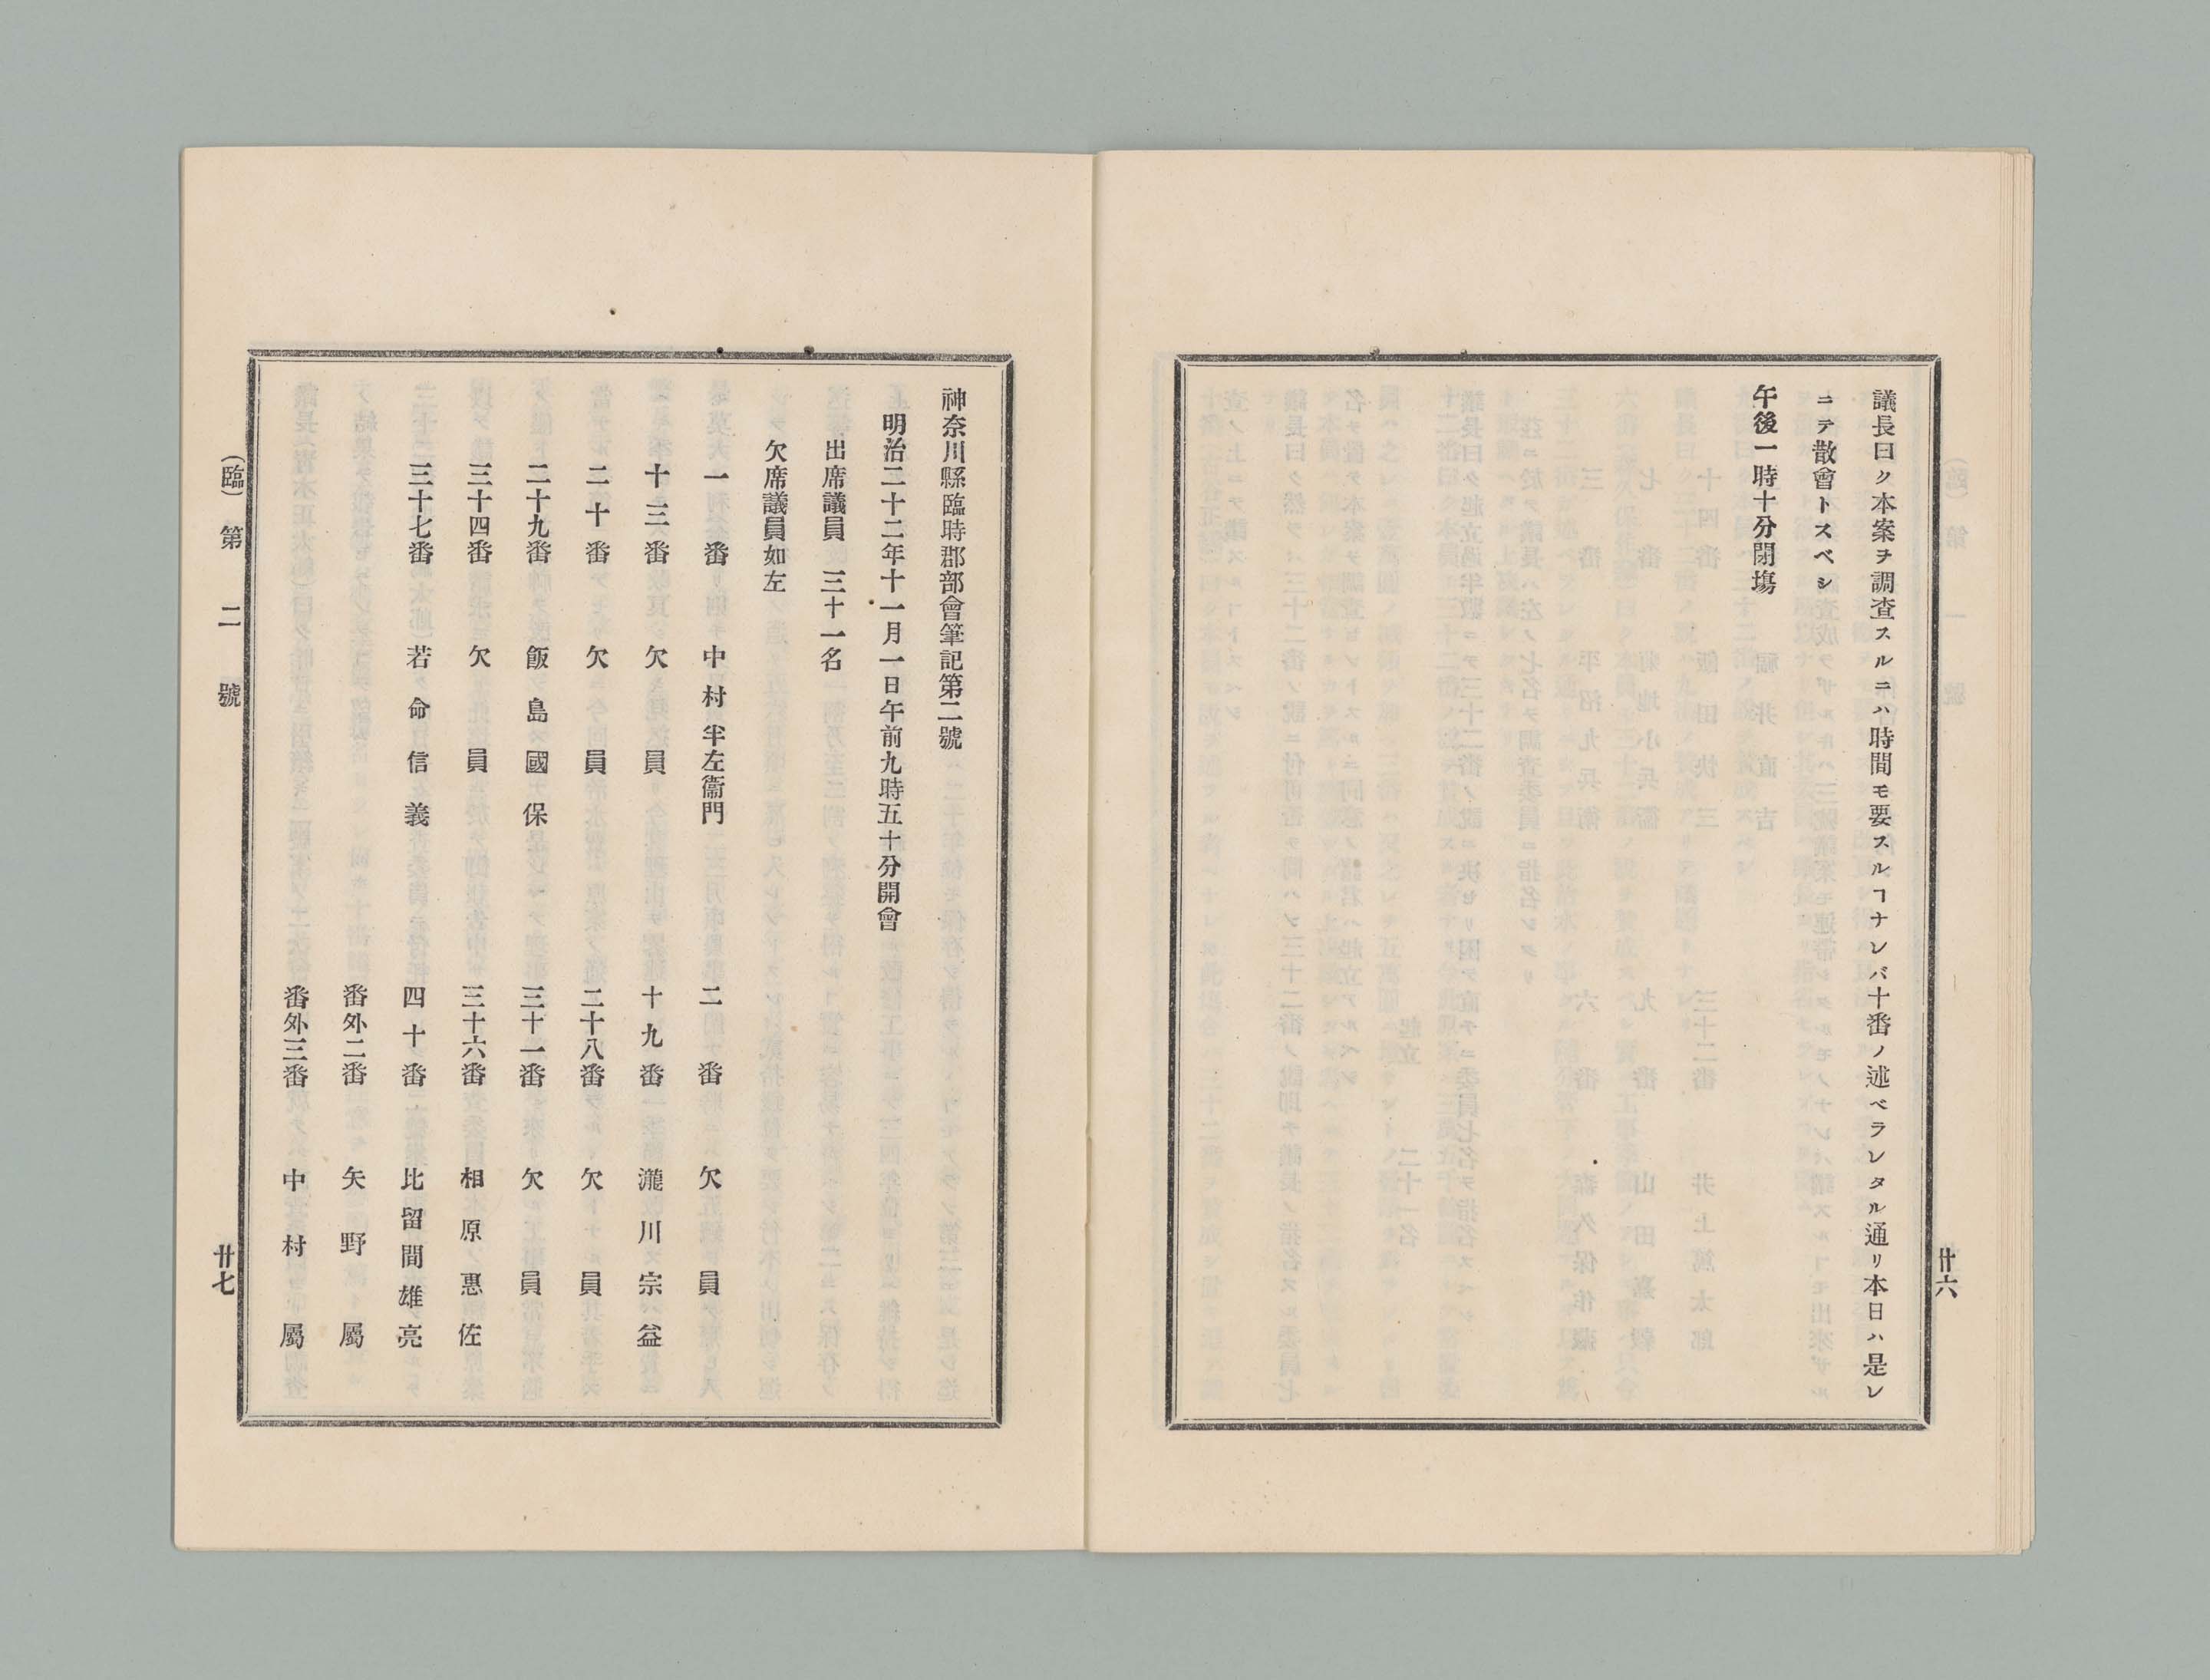 議長曰ク本案ヲ調査スルニハ時間モ要スルヿナレバ十番ノ述ベラレタル通リ本日ハ是レ
ニテ散會トスベシ
午後一時十分閉塲
廿六
神奈川縣臨時郡部會筆記第二號
明治二十二年十一月一日午前九時五十分開會
出席議員 三十一名
欠席議員如左
一番 中村半左衞門 二番 欠員
十三番 欠員 十九番 瀧川宗益
二十番 欠員 二十八番 欠員
二十九番 飯島國保 三十一番 欠員
三十四番 欠員 三十六番 相原惠佐
三十七番 若命信義 四十番 比留間雄亮
番外二番 矢野屬
番外三番 中村屬
(臨) 第二號 廿七